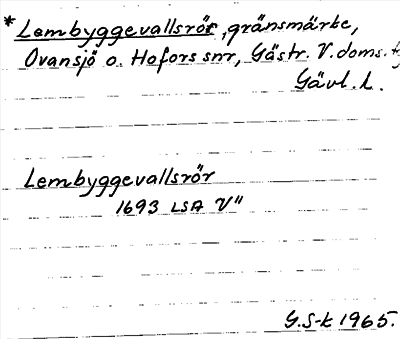 *Lembyggevallsrör, gränsmärke,
Ovansjö o. Hofors snr, Gästr. V. doms.
Gävl. l.
Lembyggevallsrör
1693 LSA V"
G.S-k 1965.